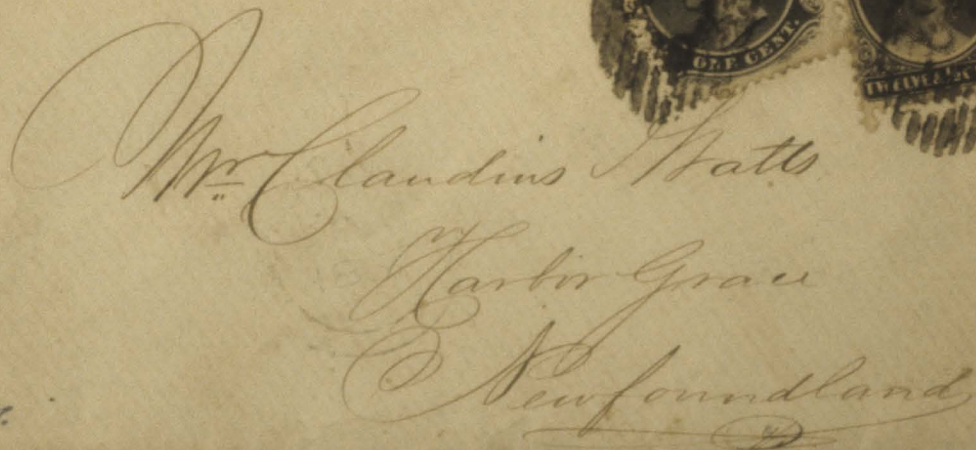 ONE CENT.
TWELVE &
Mr. Claudius Watts
Harbor Grace
Newfoundland